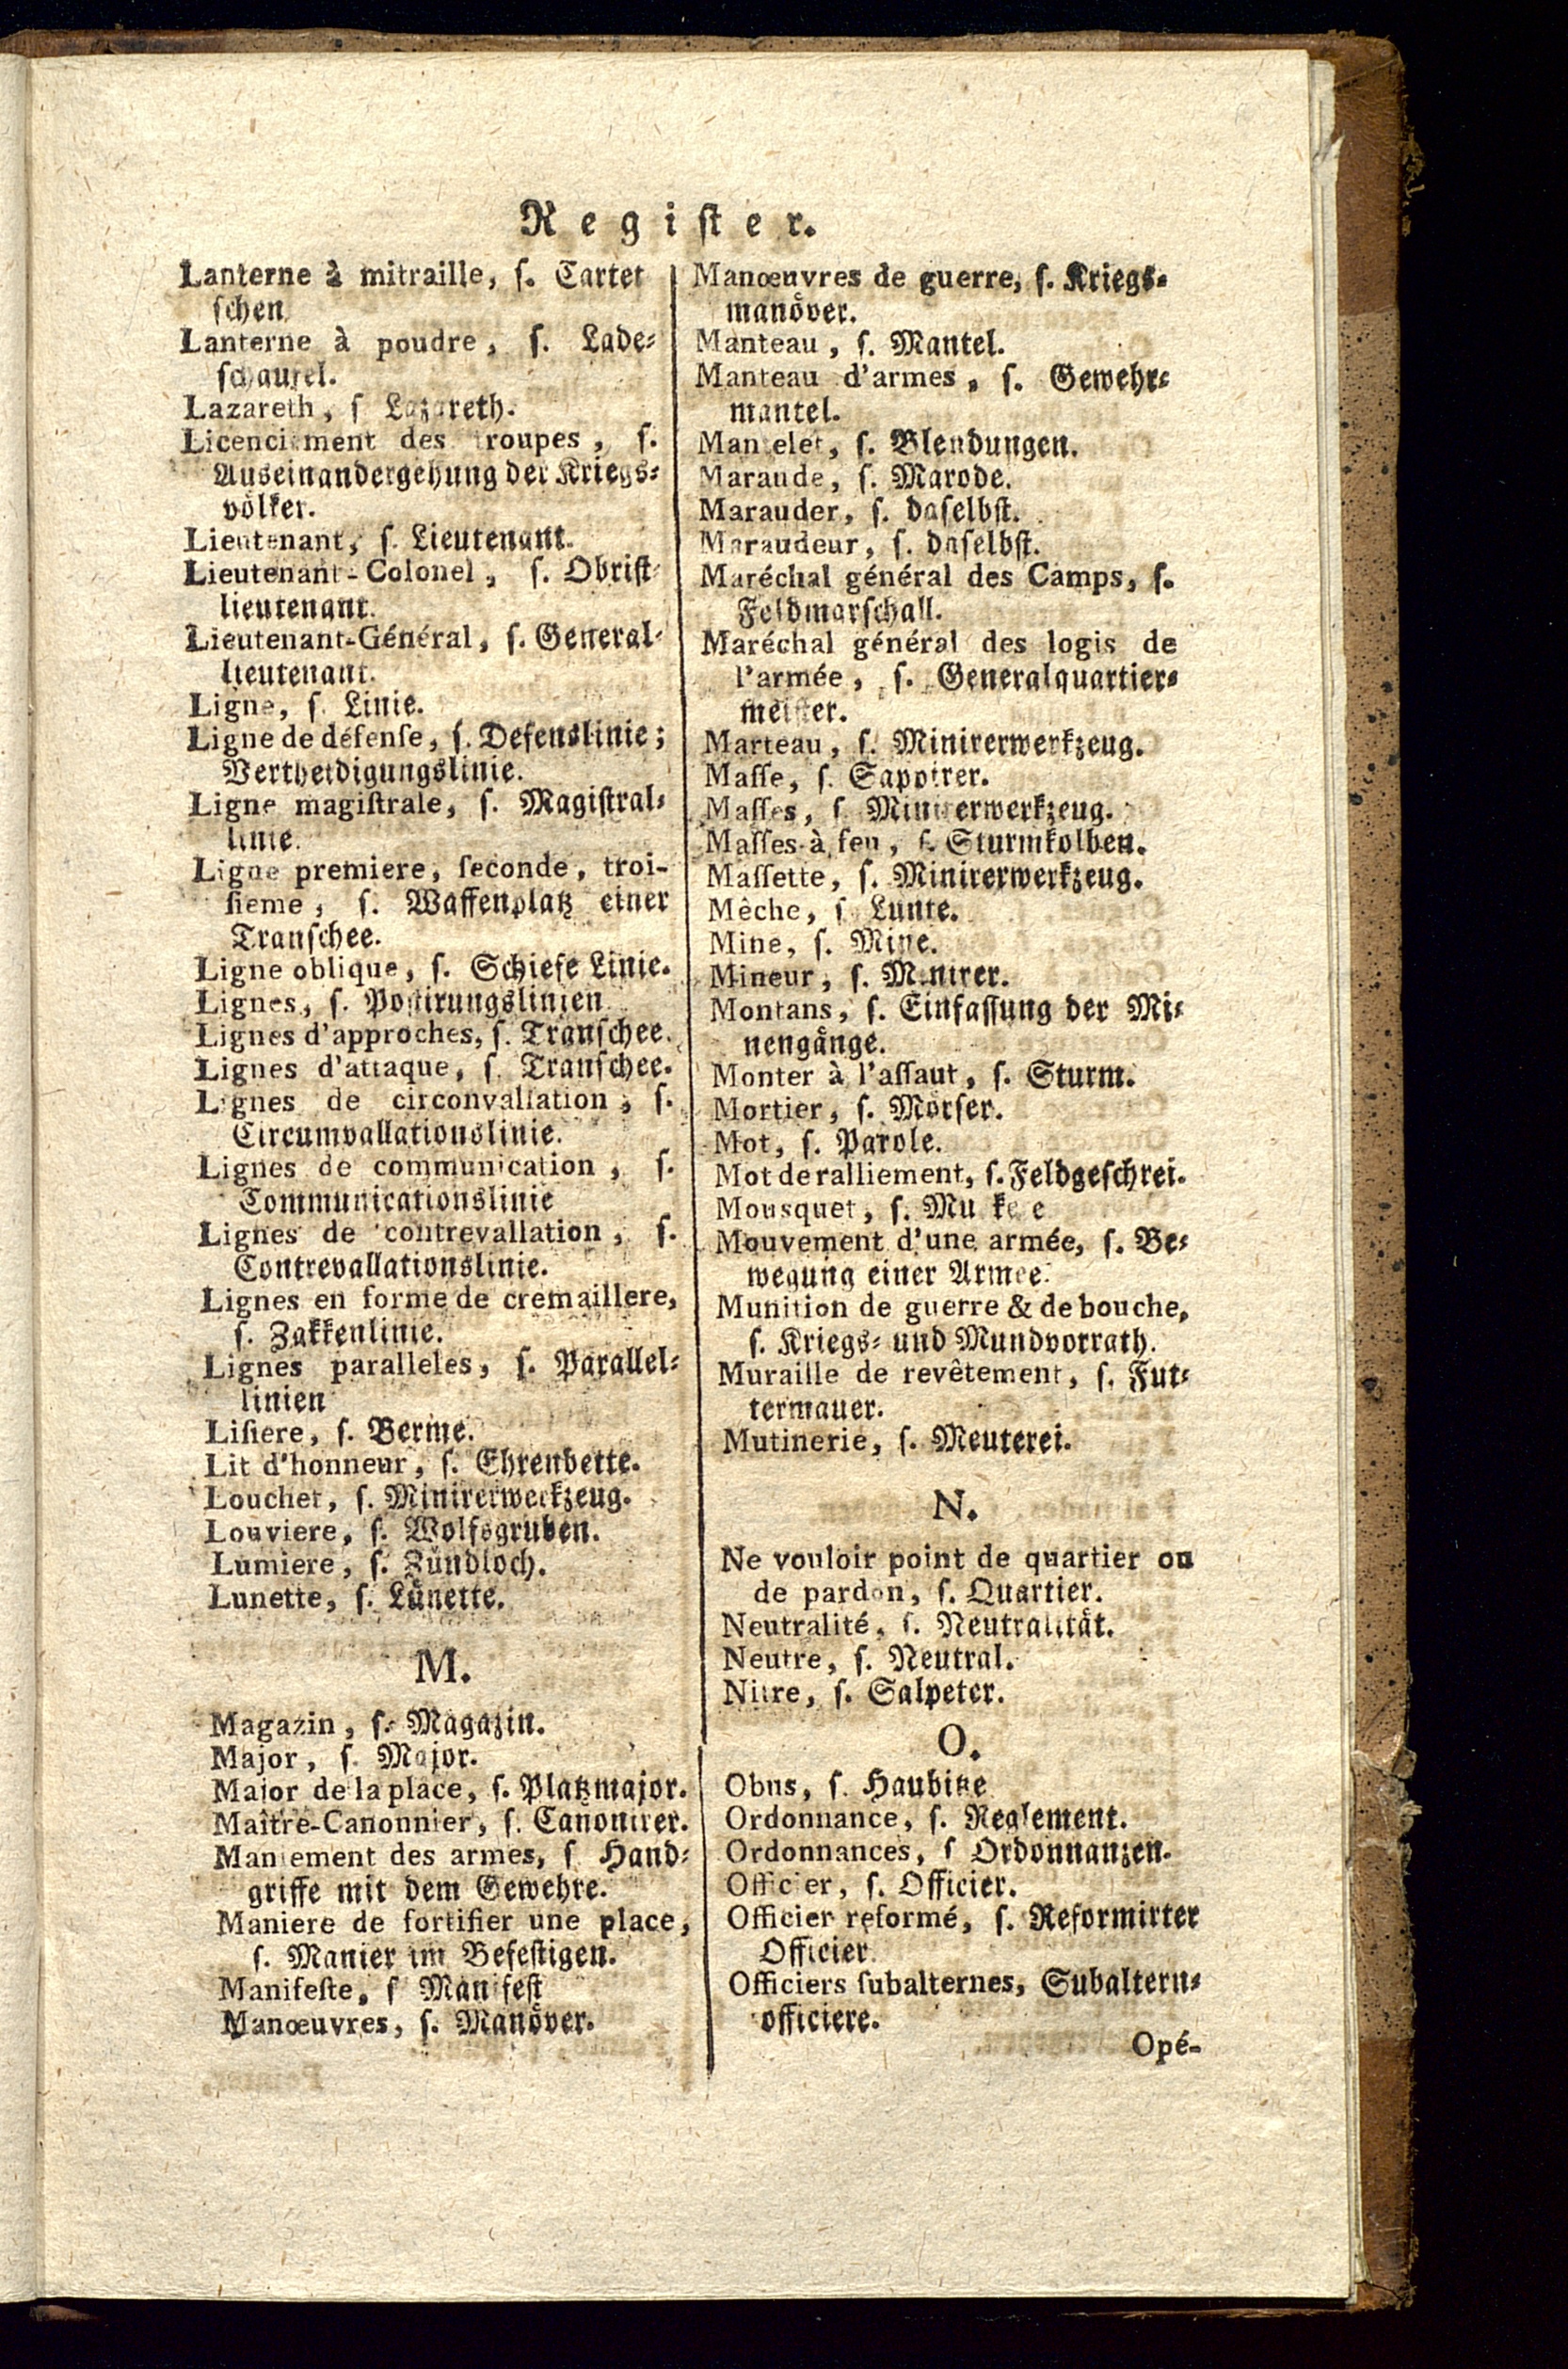 Regiſter.
Lanterne à mitraille, ſ. Cartet
ſchen
Lanterne à poudre, ſ. Lade⸗
ſchaufel.
Lazareth, ſ Lazareth.
Licenciement des troupes, ſ.
Auseinandergehung der Kriegs⸗
völker.
Lieutenant, ſ. Lieutenant.
Lieutenant-Colonel, ſ. Obriſt⸗
lieutenant.
Lieutenant-Général, ſ. General⸗
lieutenant.
Ligne, ſ. Linie.
Ligne de défenſe, ſ. Defenslinie;
Vertheidigungslinie.
Ligne magiſtrale, ſ. Magiſtral⸗
linie.
Ligne premiere, ſeconde, troi-
ſieme, ſ. Waffenplatz einer
Tranſchee.
Ligne oblique, ſ. Schiefe Linie.
Lignes, ſ. Poſtirungslinien
Lignes d'approches, ſ. Tranſchee.
Lignes d'attaque, ſ. Tranſchee.
Lignes de circonvallation, ſ.
Circumvallationslinie.
Lignes de communication, ſ.
Communicationslinie
Lignes de contrevallation, ſ.
Contrevallationslinie.
Lignes en forme de cremaillere,
ſ. Zakkenlinie.
Lignes paralleles, ſ. Parallel⸗
linien
Liſiere, ſ. Berme.
Lit d'honneur, ſ. Ehrenbette.
Louchet, ſ. Minirerwerkzeug.
Louviere, ſ. Wolfsgruben.
Lumiere, ſ. Zündloch.
Lunette, ſ. Lünette.
M.
Magazin, ſ. Magazin.
Major, ſ. Major.
Major de la place, ſ. Platzmajor.
Maître-Canonnier, ſ. Canonirer.
Maniement des armes, ſ Hand⸗
griffe mit dem Gewehre.
Maniere de fortifier une place,
ſ. Manier im Befeſtigen.
Manifeſte, ſ Manifeſt
Manœuvres, ſ. Manöver.
Manœuvres de guerre, ſ. Kriegs⸗
manöver.
Manteau, ſ. Mantel.
Manteau d'armes, ſ. Gewehr⸗
mantel.
Mantelet, ſ. Blendungen.
Maraude, ſ. Marode.
Marauder, ſ. daſelbſt.
Maraudeur, ſ. daſelbſt.
Maréchal général des Camps, ſ.
Feldmarſchall.
Maréchal général des logis de
l'armée, ſ. Generalquartier⸗
meiſter.
Marteau, ſ. Minirerwerkzeug.
Maſſe, ſ. Sapoirer.
Maſſes, ſ Minirerwerkzeug.
Maſſes à feu, ſ. Sturmkolben.
Maſſette, ſ. Minirerwerkzeug.
Mêche, ſ Lunte.
Mine, ſ. Mine.
Mineur, ſ. Minirer.
Montans, ſ. Einfaſſung der Mi⸗
nengänge.
Monter à l'aſſaut, ſ. Sturm.
Mortier, ſ. Mörſer.
Mot, ſ. Parole.
Mot de ralliement, ſ. Feldgeſchrei.
Mousquet, ſ.
Mouvement d'une armée, ſ. Be⸗
wegung einer Armee.
Munition de guerre & de bouche,
ſ. Kriegs⸗ und Mundvorrath.
Muraille de revêtement, ſ. Fut⸗
termauer.
Mutinerie, ſ. Meuterei.
N.
Ne vouloir point de quartier ou
de pardon, ſ. Quartier.
Neutralité, ſ. Neutralität.
Neutre, ſ. Neutral.
Nitre, ſ. Salpeter.
O.
Obus, ſ. Haubitze
Ordonnance, ſ. Reglement.
Ordonnances, ſ Ordonnanzen.
Officier, ſ. Officier.
Officier reformé, ſ. Reformirter
Officier.
Officiers ſubalternes, Subaltern⸗
officiere.
Opé-